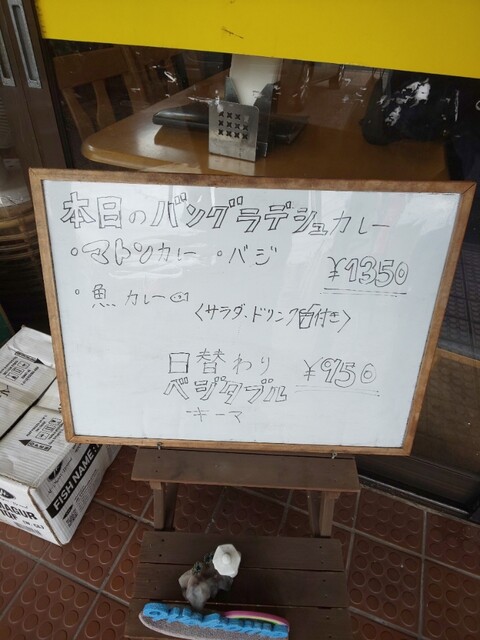 本日のバングラデシュカレー
・マトンカレー ・バジ
¥1350
・魚カレー
<サラダ、ドリンク付き>
日替わり
ベジタブル
キーマ
¥950
FISH NAME: